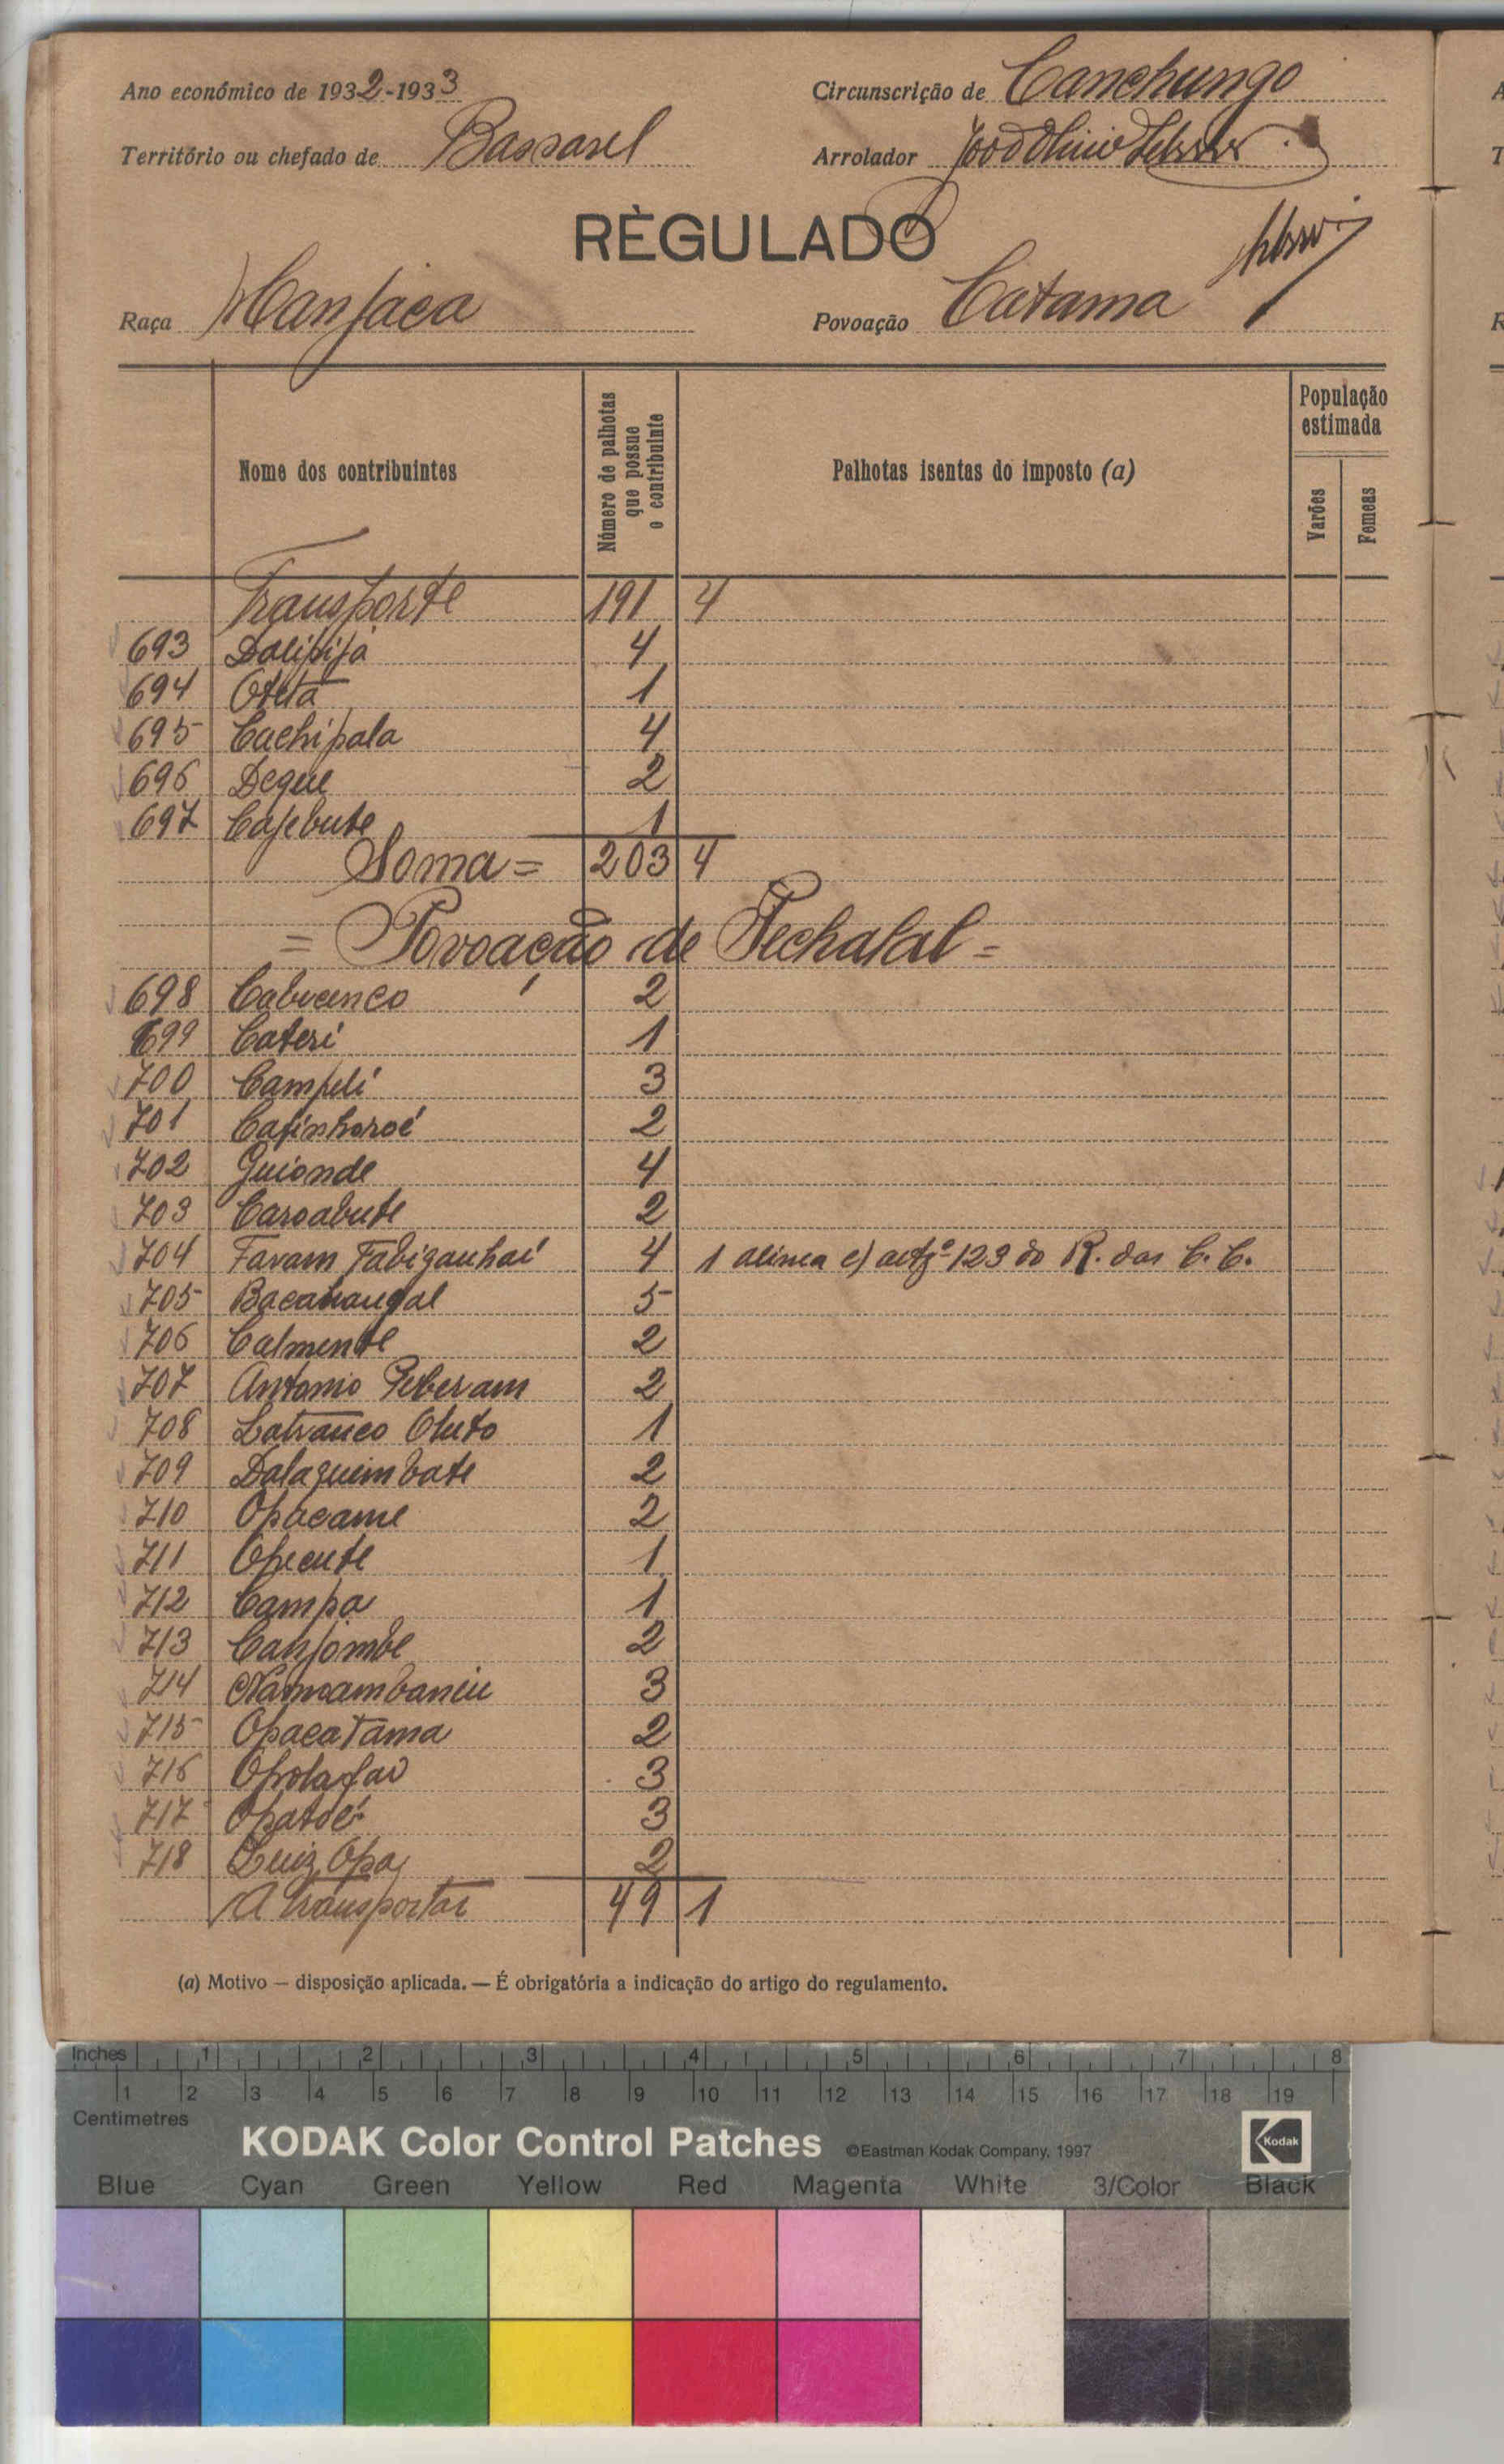 Ano económico de 1932-1933
Circunscrição de Canchungo
Território ou chefado de Bassarel
Arrolador João
RÈGULADO
Raça Manjaca
Povoação Catama
Nome dos contribuintes
Número de palhotas que possue o contribuinte
Palhotas isentas do imposto (a)
População estimada
Varões
Femeas
Transporte 191 4
693 Dalipijá 4
694 Oteta 1
695 Cachipala 4
696 Deque 2
697 Cajebute 1
Soma = 203 4
= Povoação de Pechalal =
698 Cabucenco 2
699 Caterí 1
700 Campelí 3
701 Cafinhoroé 2
702 Guionde 4
703 Caroabute 2
704 Favam Fabiganhaí 4 1 alinea e) artgº 123 do R. das C. C.
705 Bacahangal 5
706 Calmente 2
707 Antonio Peberam 2
708 Latranco Oluto 1
709 Dalaquimbate 2
710 Opacame 2
711 Opecute 1
712 Campa 1
713 Canjombe 2
714 3
715 Opacatama 2
716 3
717 Opatoé 3
718 Luiz Opa 2
A transportar 49 1
(a) Motivo — disposição aplicada. — É obrigatória a indicação do artigo do regulamento.
Inches 1 2 3 4 5 6 7 8
1 2 3 4 5 6 7 8 9 10 11 12 13 14 15 16 17 18 19
Centimetres
KODAK Color Control Patches ©Eastman Kodak Company, 1997 Kodak
Blue Cyan Green Yellow Red Magenta White 3/Color Black